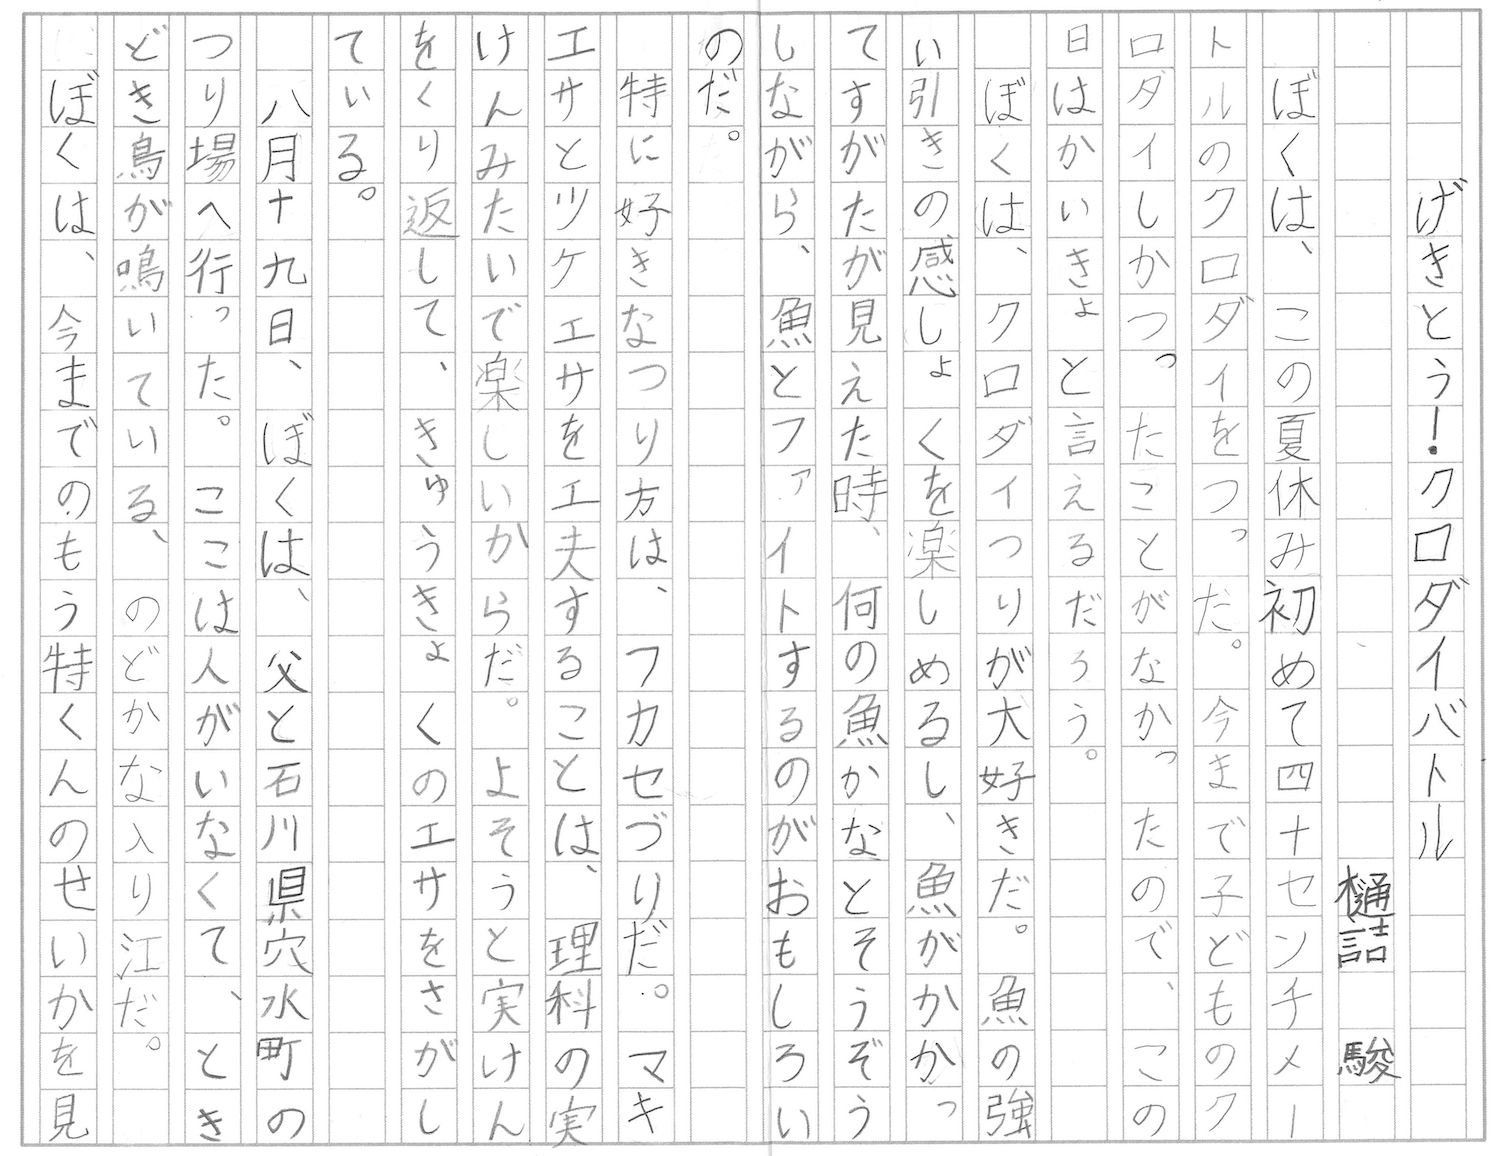 げきとう!クロダイバトル
樋詰 駿
ぼくは、この夏休み初めて四十センチメー
トルのクロダイをつった。今まで子どものク
ロダイしかつったことがなかったので、この
日はかいきょと言えるだろう。
ぼくは、クロダイつりが大好きだ。魚の強
い引きの感しょくを楽しめるし、魚がかかっ
てすがたが見えた時、何の魚かなとそうぞう
しながら、魚とファイトするのがおもしろい
のだ。
特に好きなつり方は、フカセづりだ。マキ
エサとツケエサを工夫することは、理科の実
けんみたいで楽しいからだ。よそうと実けん
をくり返して、きゅうきょくのエサをさがし
ている。
八月十九日、ぼくは、父と石川県穴水町の
つり場へ行った。ここは人がいなくて、とき
どき鳥が鳴いている、のどかな入り江だ。
ぼくは、今までのもう特くんのせいかを見